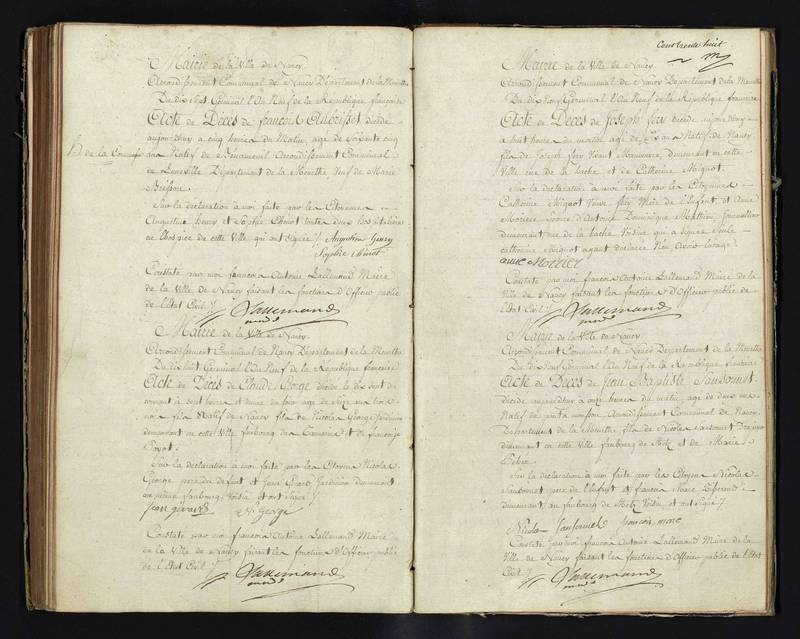 Mairie de la Ville de Nancy
Arrondissement Communal de Nancy Département de la Meurthe
Du dix huit Germinal l'An Neuf de la République françoise
Acte de Deces de françois Aubrisset décédé
aujourdhuy a cinq heures du Matin, agé de soixante cinq
ans Natif de Arrondissement Communal
de Luneville Département de la Meurthe Neuf de Marie
Sur la déclaration à moi faite par les Citoyennes
Augustine henry et Sophie Chinot toutes deux hospitalieres
de l'hospice de cette Ville qui ont signé /. Augustine henry
Sophie Chinot
Constaté par moi françois Antoine Lallemand Maire
de la Ville de Nancy faisant les fonctions d'Officier public
de l'état Civil /.
Lallemand
Mairie de la Ville de Nancy
Arrondissement Communal de Nancy Département de la Meurthe
Du dix huit Germinal l'An Neuf de la République françoise
Acte de Deces de Claude George décédé le dix sept du
courant à sept heures et demie du soir agé de
Natif de Nancy fils de Nicolas George Jardinier
demeurant en cette Ville faubourg des et de françoise
Sur la déclaration à moi faite par les Citoyens Nicolas
George pere du défunt et Jean Jardinier demeurant
au même faubourg, Voisin et ont signé /.
N. George
Constaté par moi françois Antoine Lallemand Maire
de la Ville de Nancy faisant les fonctions d'Officier public
de l'état Civil /.
Lallemand
Cent trente huit
Mairie de la Ville de Nancy
Arrondissement Communal de Nancy Département de la Meurthe
Du dix Neuf Germinal l'An Neuf de la République françoise
Acte de Deces de Joseph Jory décédé aujourdhuy
à huit heures du matin agé de Natif de Nancy
fils de Joseph Jory Vivant Manoeuvre demeurant en cette
Ville rue de la hache et de Catherine Miquot
Sur la déclaration à moi faite par les Citoyennes
Catherine Miquot Veuve Jory Mère de l'enfant et Anne
demeurant rue de la hache Voisine, qui a signée seule
Catherine Miquot ayant déclarée Non Avoir l'usage
Constaté par moi françois Antoine Lallemand Maire de la
Ville de Nancy faisant les fonctions d'Officier public de
l'état Civil /.
Lallemand
Mairie de la Ville de Nancy
Arrondissement Communal de Nancy Département de la Meurthe
Du dix Neuf Germinal l'An Neuf de la République françoise
Acte de Deces de Jean Baptiste Sansonnet
décédé à onze heures du matin, agé de deux ans
Natif de pont a mousson Arrondissement Communal de Nancy
Département de la Meurthe fils de Nicolas Sansonnet
demeurant en cette Ville faubourg de Metz et de Marie
Sur la déclaration à moi faite par les Citoyens Nicolas
Sansonnet pere de l'enfant et françois Marc
demeurant au faubourg de Metz Voisin et ont signé /.
Nicolas Sansonnet françois marc
Constaté par moi françois Antoine Lallemand Maire de la
Ville de Nancy faisant les fonctions d'Officier public de l'état
Civil /.
Lallemand